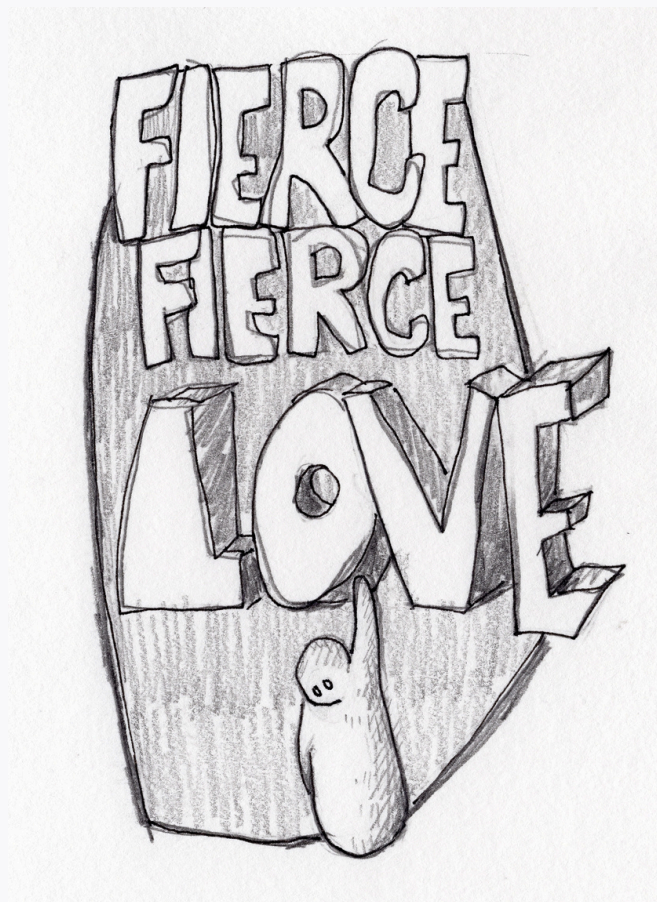 FIERCE
FIERCE
LOVE